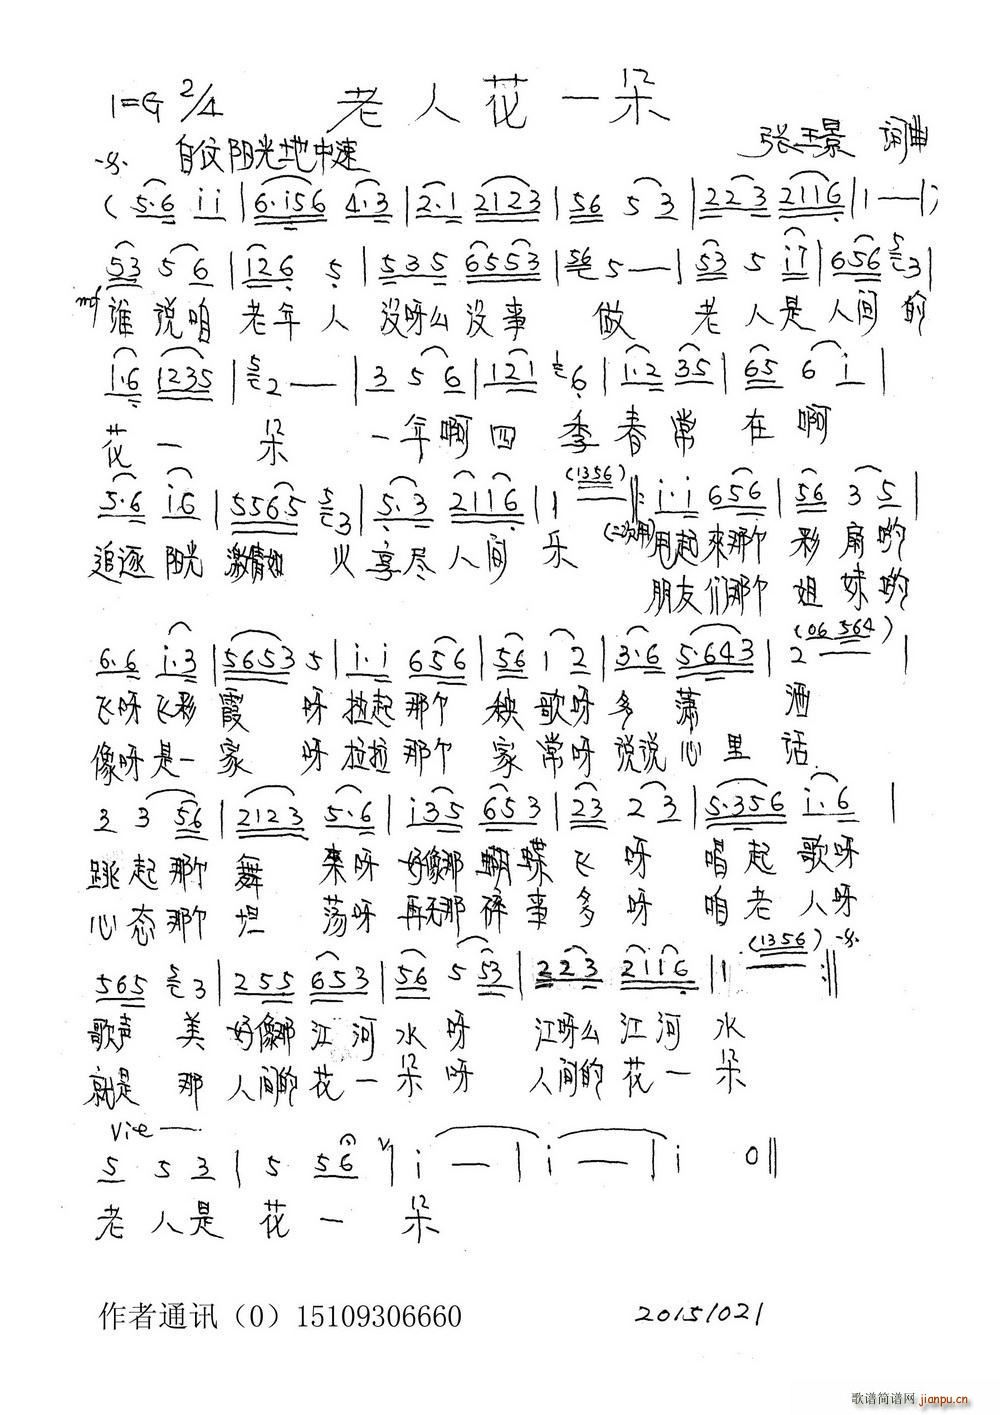 1=G 2/4 老人花一朵
自 阳光地中速 张玉景 词曲
( 5·6 i i | 6·i56 4·3 | 2·1 2123 | 56 5 3 | 223 2116 | 1 — )
53 5 6 | 126 5 | 535 6553 | 56 5 — | 53 5 i7 | 656 5 3 |
mf 谁说咱 老年人 没呀么没事 做 老人是人间的
1·6 1235 | 5 2 — | 3 5 6 | 121 1 6 | 1·2 35 | 65 6 i |
花一 朵 一年啊四 季春常 在啊
5·6 i·6 | 5565 5 3 | 5·3 2116 | 1 (1356) ‖: i·i 656 | 56 3 5 |
追逐 阳光 激情如 火享尽人间 乐 (二次用) 甩起来那个 彩扇哟
朋友们那个 姐妹哟
6·6 i·3 | 5653 5 | i·i 656 | 56 1 2 | 3·6 5·643 | 2 (06 564) |
飞呀飞彩 霞 呀拉起那个 秧歌呀多 潇 洒
像呀是一 家 呀拉拉那个 家常呀说说心里 话
3 3 56 | 2123 5·6 | i35 653 | 23 2 3 | 5·356 i·6 |
跳起那个 舞 来呀 好像那蝴蝶飞 呀 唱起歌呀
心态那个 坦 荡呀 再无那碎事多 呀 咱老人呀
565 5 3 | 255 653 | 56 5 53 | 223 2116 | 1· (1356) :‖
歌声 美 好像那江河水呀 江呀么江河 水
就是 那 人间的花一朵呀 人间的花一 朵
5 5 3 | 5 56 | i — | i — | i 0 ‖
老人是 花一 朵
作者通讯（0）15109306660 20151021
歌谱简谱网 jianpu.cn